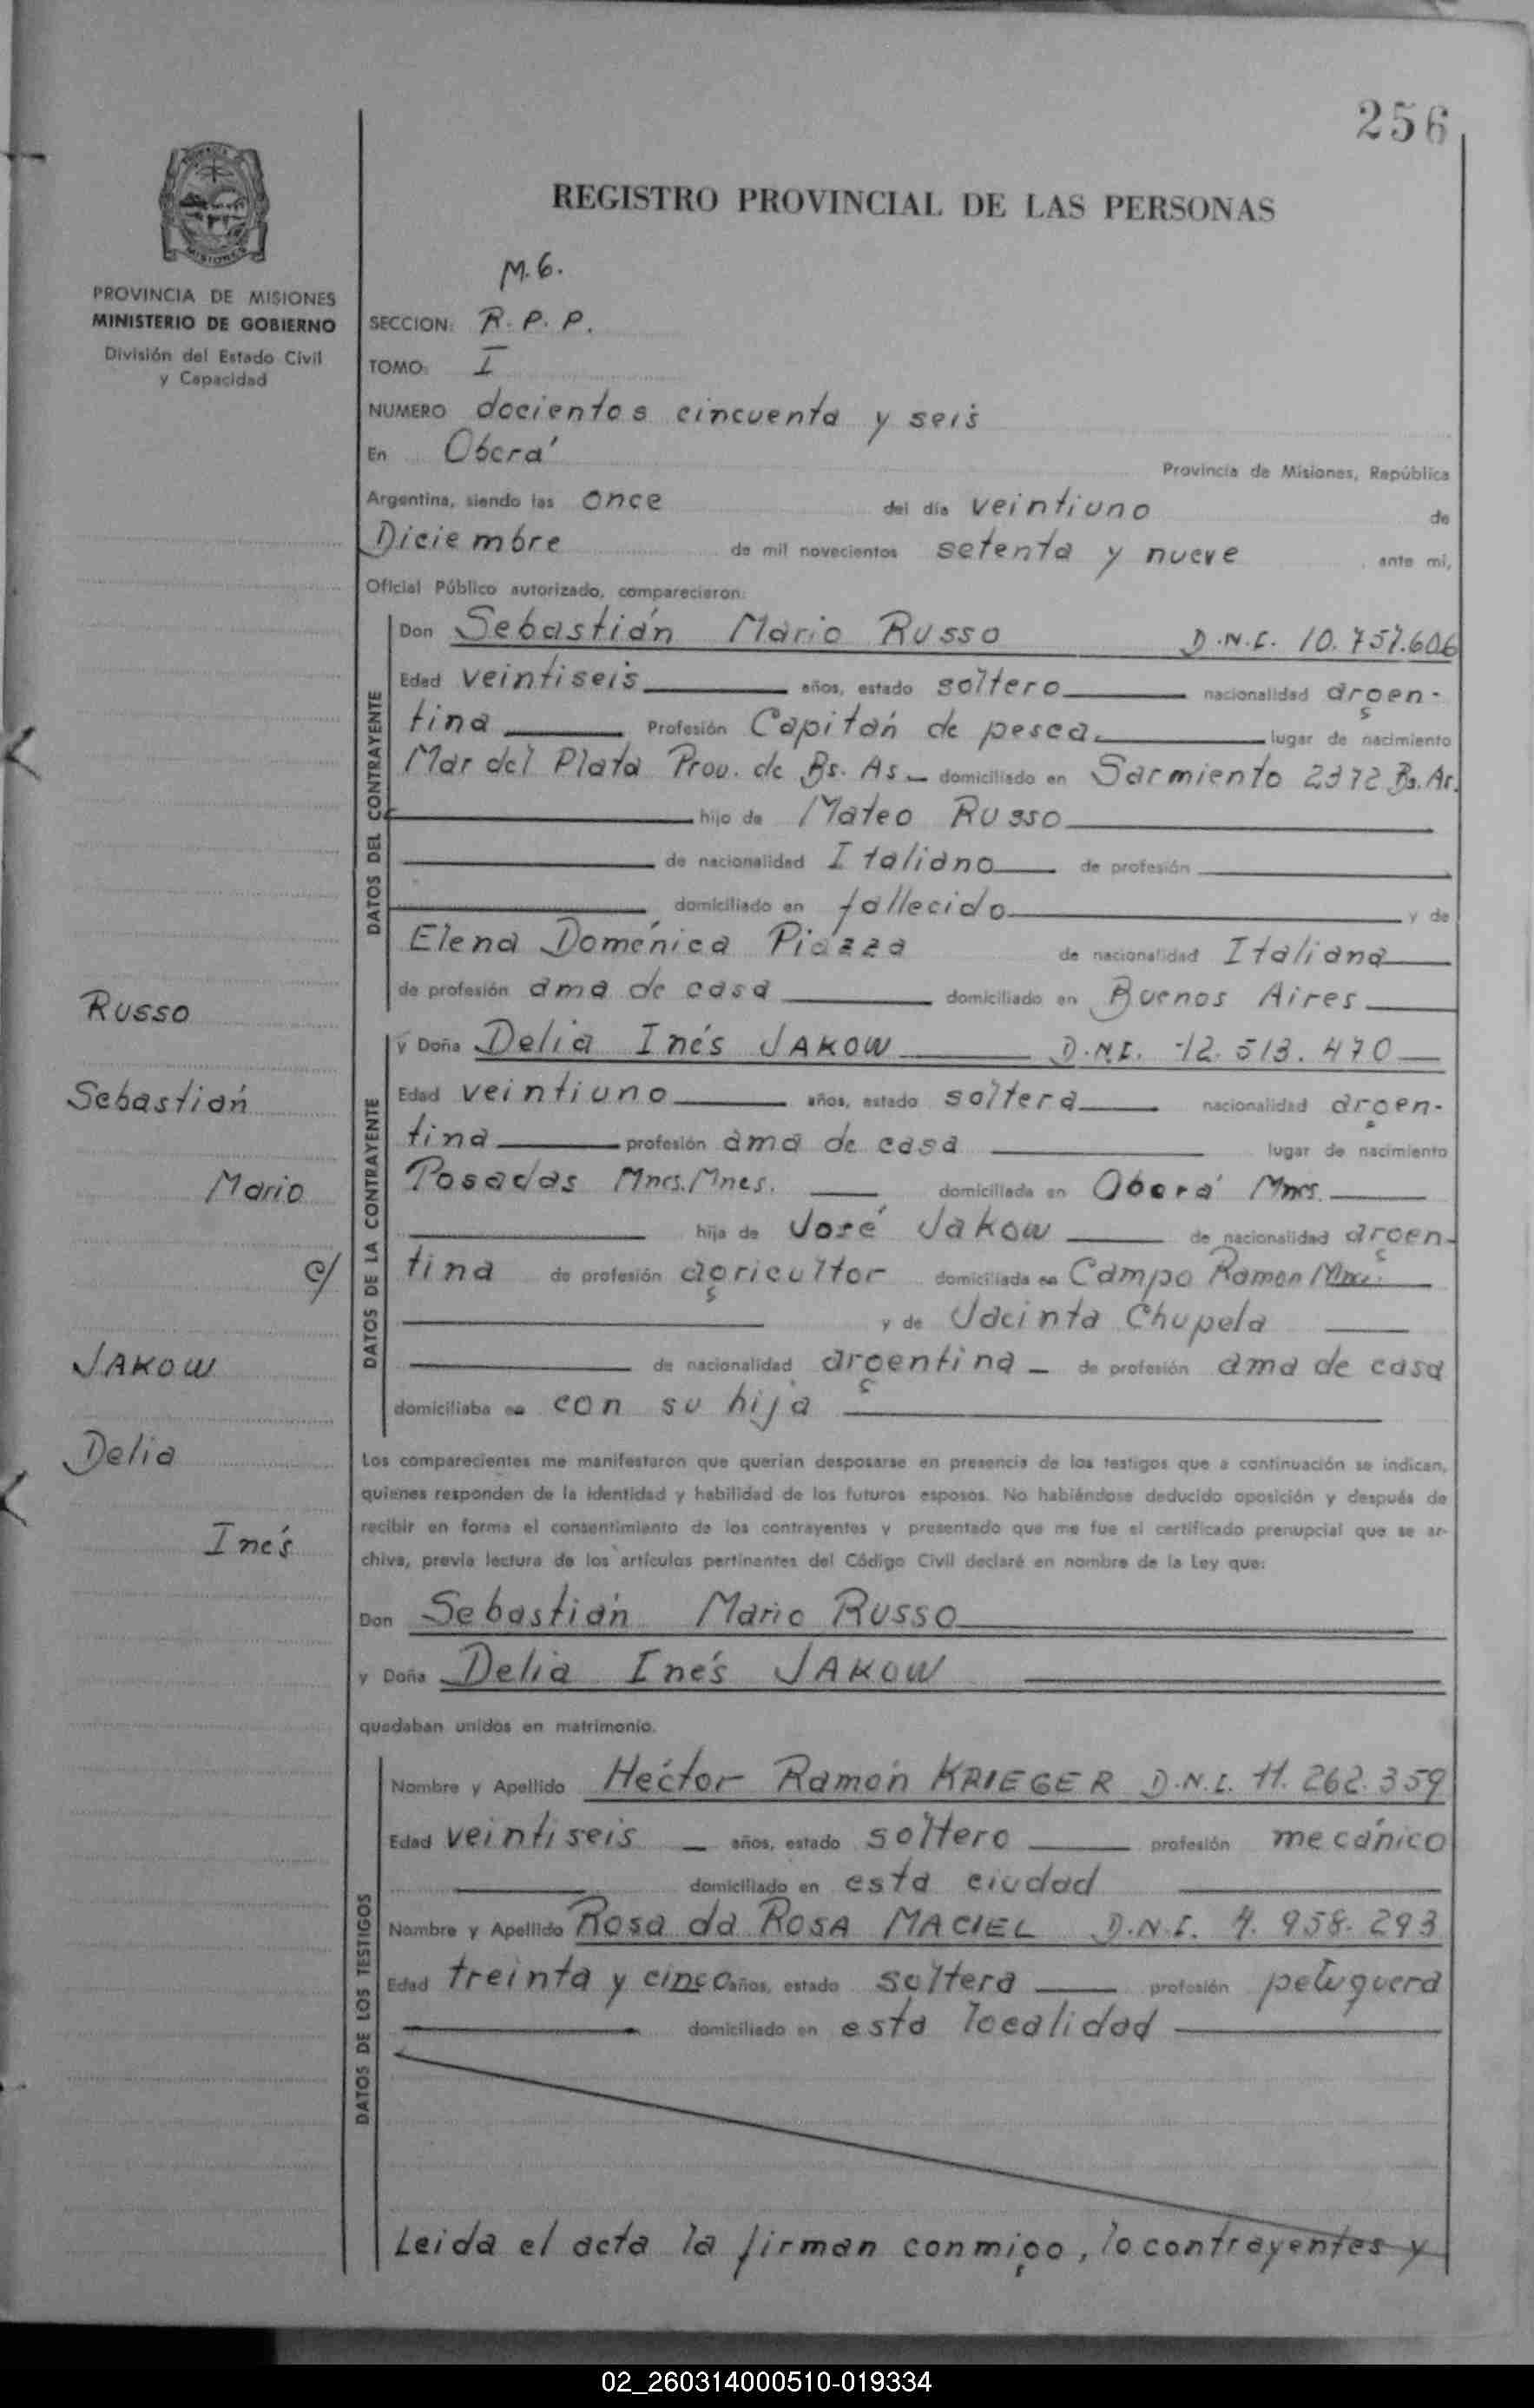 256
REGISTRO PROVINCIAL DE LAS PERSONAS
MISIONES
PROVINCIA DE MISIONES
MINISTERIO DE GOBIERNO
División del Estado Civil
y Capacidad
M.G.
SECCION: R.P.P.
TOMO: I
NUMERO docientos cincuenta y seis
En Oberá
Provincia de Misiones, República
Argentina, siendo las once del día veintiuno de
Diciembre de mil novecientos setenta y nueve ante mi,
Oficial Público autorizado, comparecieron:
DATOS DEL CONTRAYENTE
Don Sebastián Mario Russo D.N.I. 10.757.606
Edad veintiseis años, estado soltero nacionalidad argen-
tina Profesión Capitán de pesca. lugar de nacimiento
Mar del Plata Prov. de Bs. As. domiciliado en Sarmiento 2372 Bs. As.
hijo de Mateo Russo
de nacionalidad Italiano de profesión
domiciliado en fallecido y de
Elena Doménica Piazza de nacionalidad Italiana
de profesión ama de casa domiciliado en Buenos Aires
DATOS DE LA CONTRAYENTE
y Doña Delia Inés JAKOW D.N.I. 12.513.470
Edad veintiuno años, estado soltera nacionalidad argen-
tina profesión ama de casa lugar de nacimiento
Posadas Mnes. Mnes. domiciliada en Oberá Mnes.
hija de José Jakow de nacionalidad argen-
tina de profesión agricultor domiciliada en Campo Ramon Mnes.
y de Jacinta Chupela
de nacionalidad argentina de profesión ama de casa
domiciliaba en con su hija
Russo
Sebastián
Mario
c/
JAKOW
Delia
Inés
Los comparecientes me manifestaron que querían desposarse en presencia de los testigos que a continuación se indican,
quienes responden de la identidad y habilidad de los futuros esposos. No habiéndose deducido oposición y después de
recibir en forma el consentimiento de los contrayentes y presentado que me fue el certificado prenupcial que se ar-
chiva, previa lectura de los artículos pertinentes del Código Civil declaré en nombre de la Ley que:
Don Sebastián Mario Russo
y Doña Delia Inés JAKOW
quedaban unidos en matrimonio.
DATOS DE LOS TESTIGOS
Nombre y Apellido Héctor Ramón KRIEGER D.N.I. 11.262.359
Edad veintiseis años, estado soltero profesión mecánico
domiciliado en esta ciudad
Nombre y Apellido Rosa da ROSA MACIEL D.N.I. 4.958.293
Edad treinta y cinco años, estado soltera profesión peluquera
domiciliado en esta localidad
Leida el acta la firman conmigo, lo contrayentes y
02_260314000510-019334